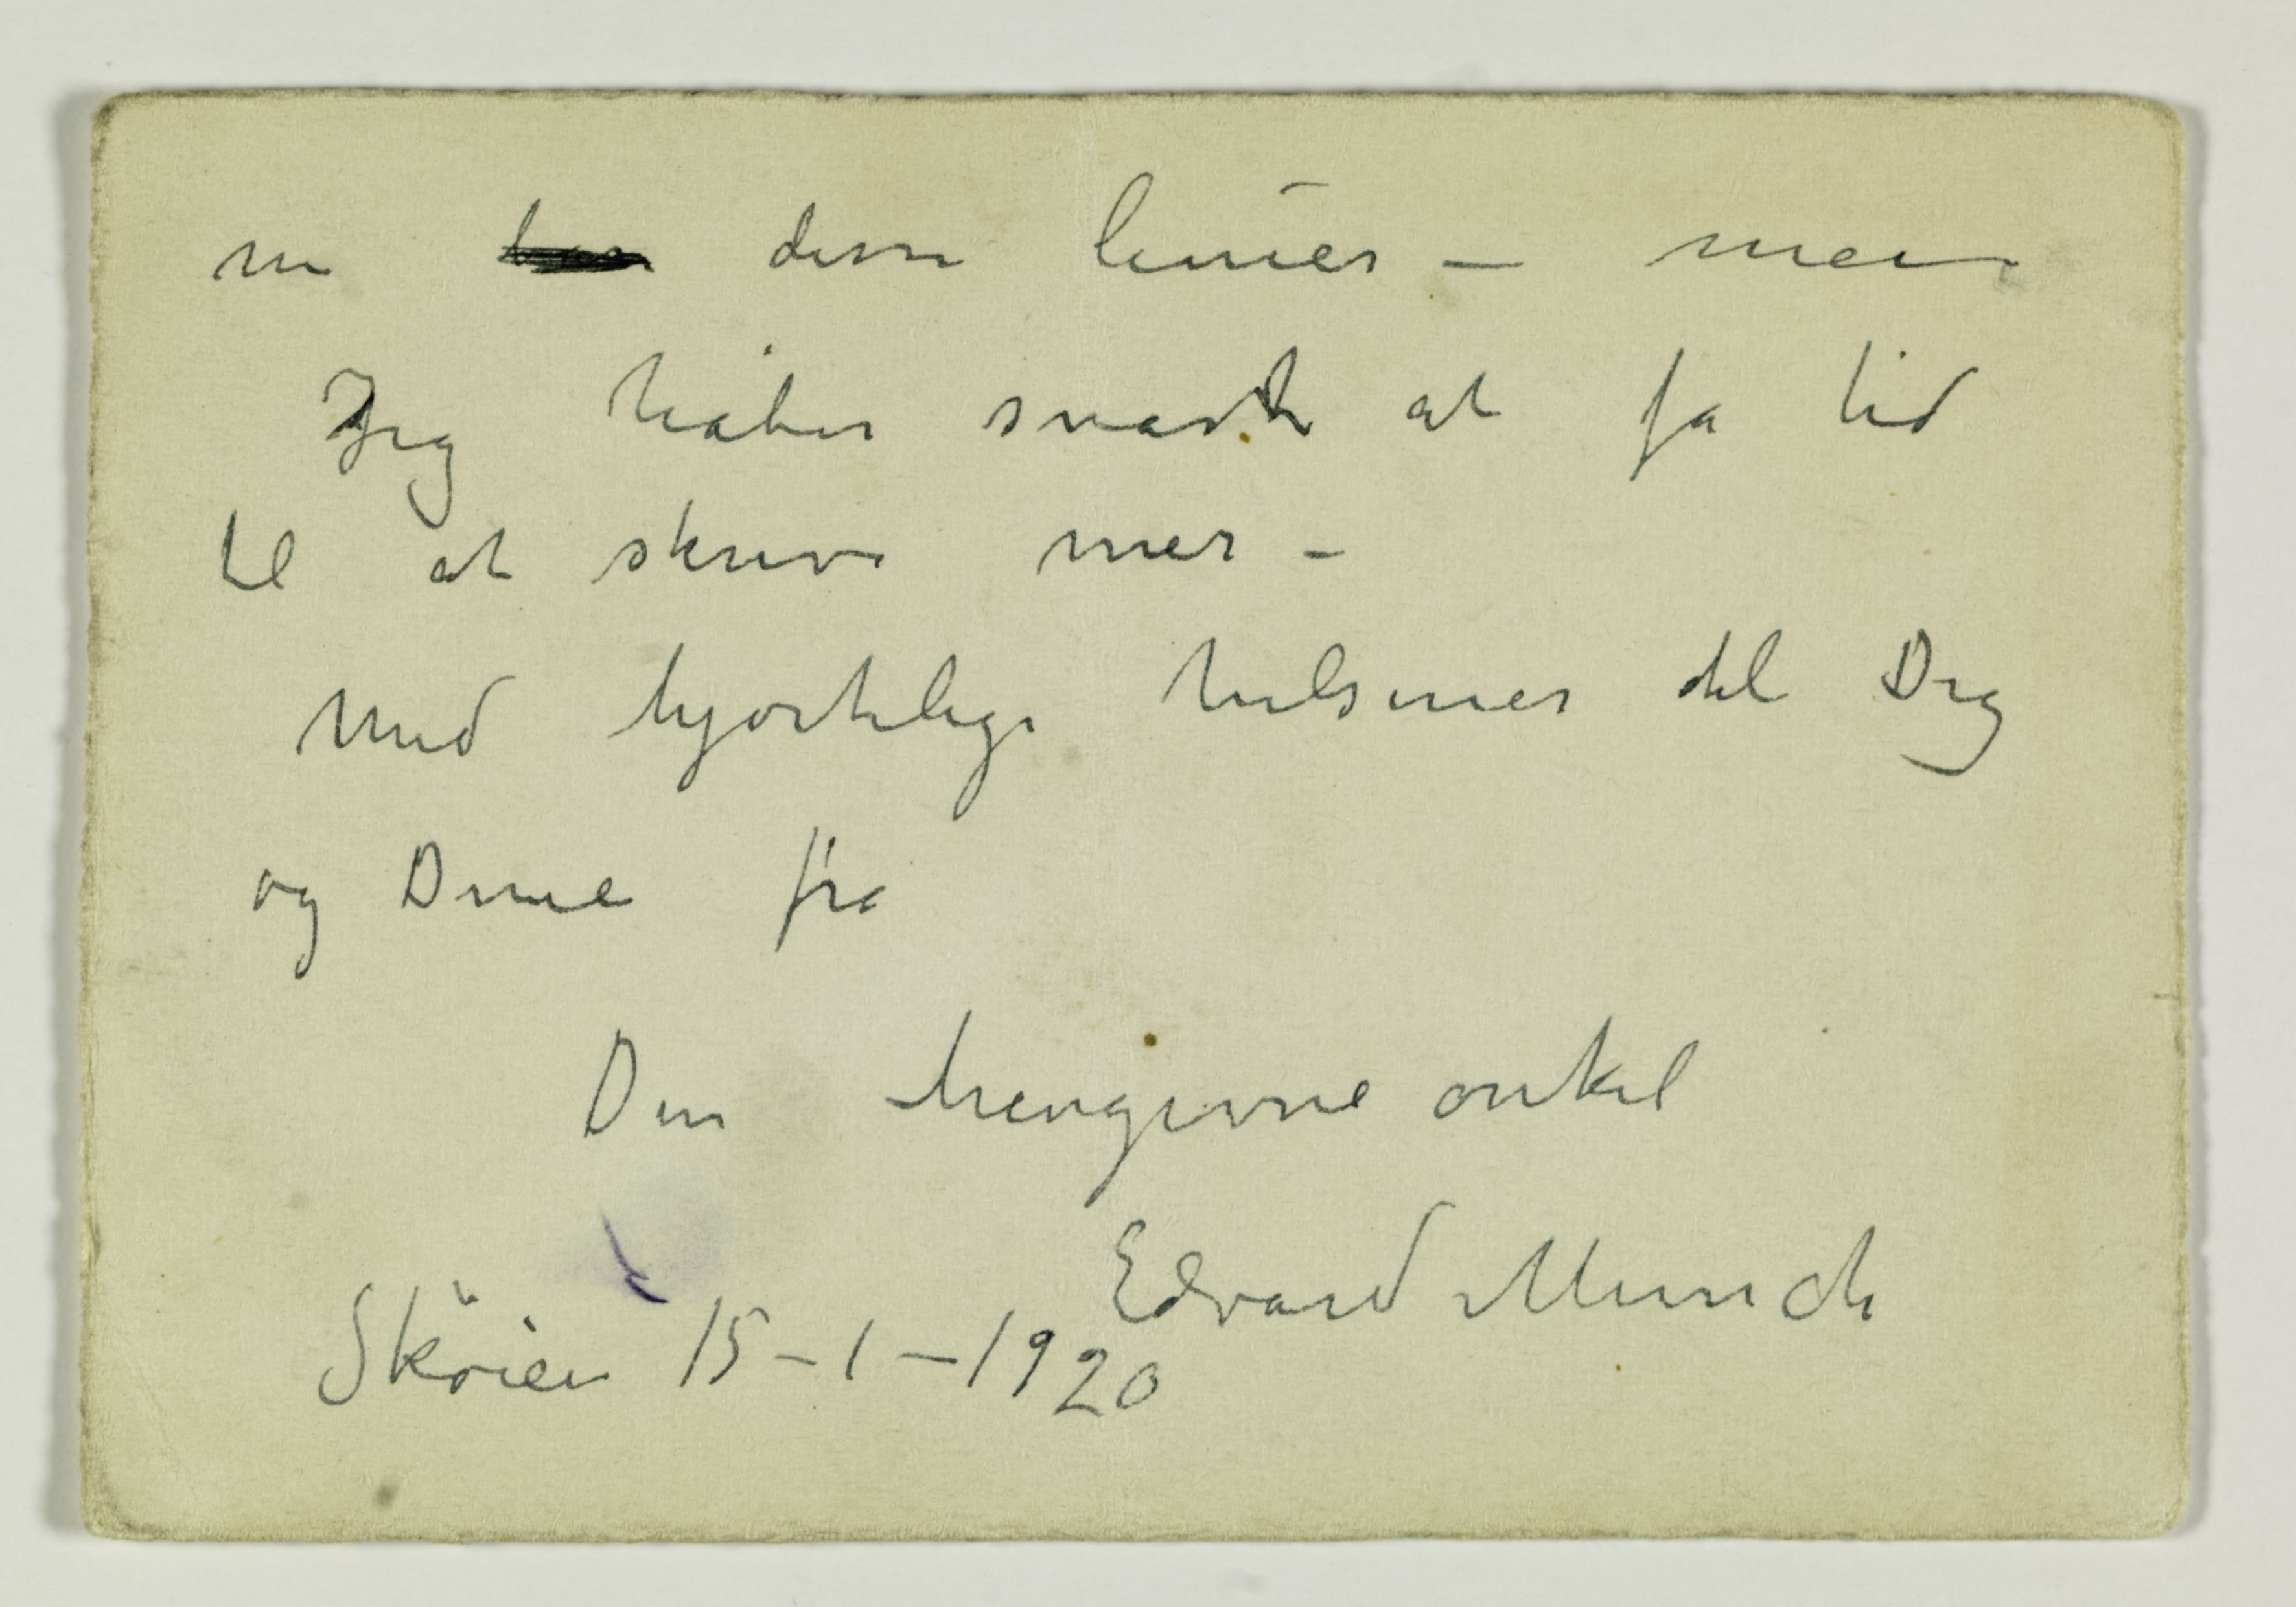 nu disse linier – men
Jeg håber snart at få tid
til at skrive mer –
Med hjertelige hilsener til Dig
og Dine fra
Din hengivne onkel
Edvard Munch
Sköien 15–1–1920